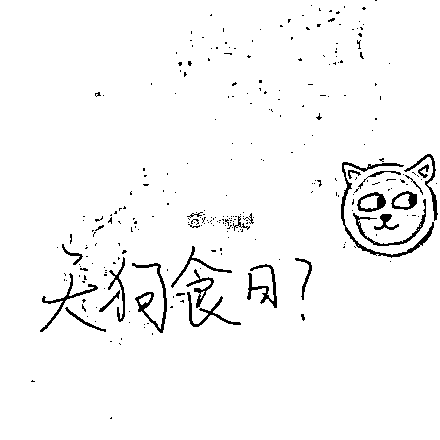 天狗食日?